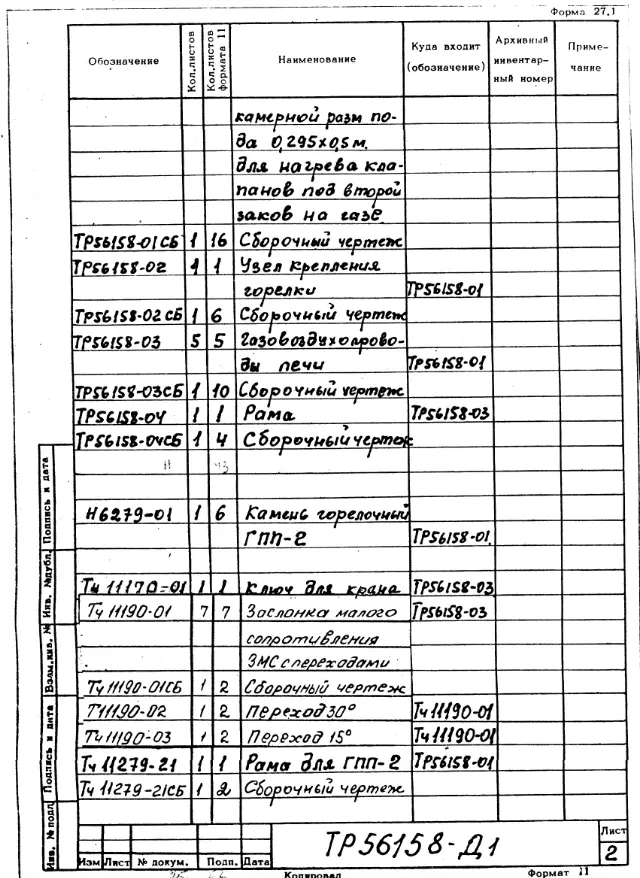 Форма 27.1
Обозначение Кол.листов Кол.листов формата 11 Наименование Куда входит (обозначение) Архивный инвентарный номер Примечание
камерной разм по-
да 0,295х0,5 м.
для нагрева кла-
панов под второй
заков на газе
ТР56158-01СБ 1 16 Сборочный чертеж
ТР56158-02 1 1 Узел крепления
горелки ТР56158-01
ТР56158-02СБ 1 6 Сборочный чертеж
ТР56158-03 5 5 Газовоздухопрово-
ды печи ТР56158-01
ТР56158-03СБ 1 10 Сборочный чертеж
ТР56158-04 1 1 Рама ТР56158-03
ТР56158-04СБ 1 4 Сборочный чертеж
11 43
Н6279-01 1 6 Камень горелочный
ГПП-2 ТР56158-01
Тч 11170-01 1 1 Ключ для крана ТР56158-03
Тч 11190-01 7 7 Заслонка малого ТР56158-03
сопротивления
ЗМС с переходами
Тч 11190-01СБ 1 2 Сборочный чертеж
Т11190-02 1 2 Переход 30° Тч 11190-01
Тч 11190-03 1 2 Переход 15° Тч 11190-01
Тч 11279-21 1 1 Рама для ГПП-2 ТР56158-01
Тч 11279-21СБ 1 2 Сборочный чертеж
Инв. № подл. Подпись и дата Взам.инв. № Инв. №дубл. Подпись и дата
Изм Лист № докум. Подп. Дата
ТР56158-Д1
Лист
2
Копировал Формат 11